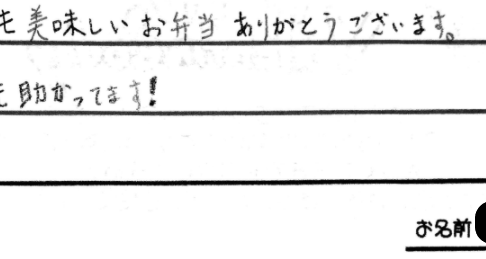 も美味しいお弁当ありがとうございます。
も助かってます!
お名前